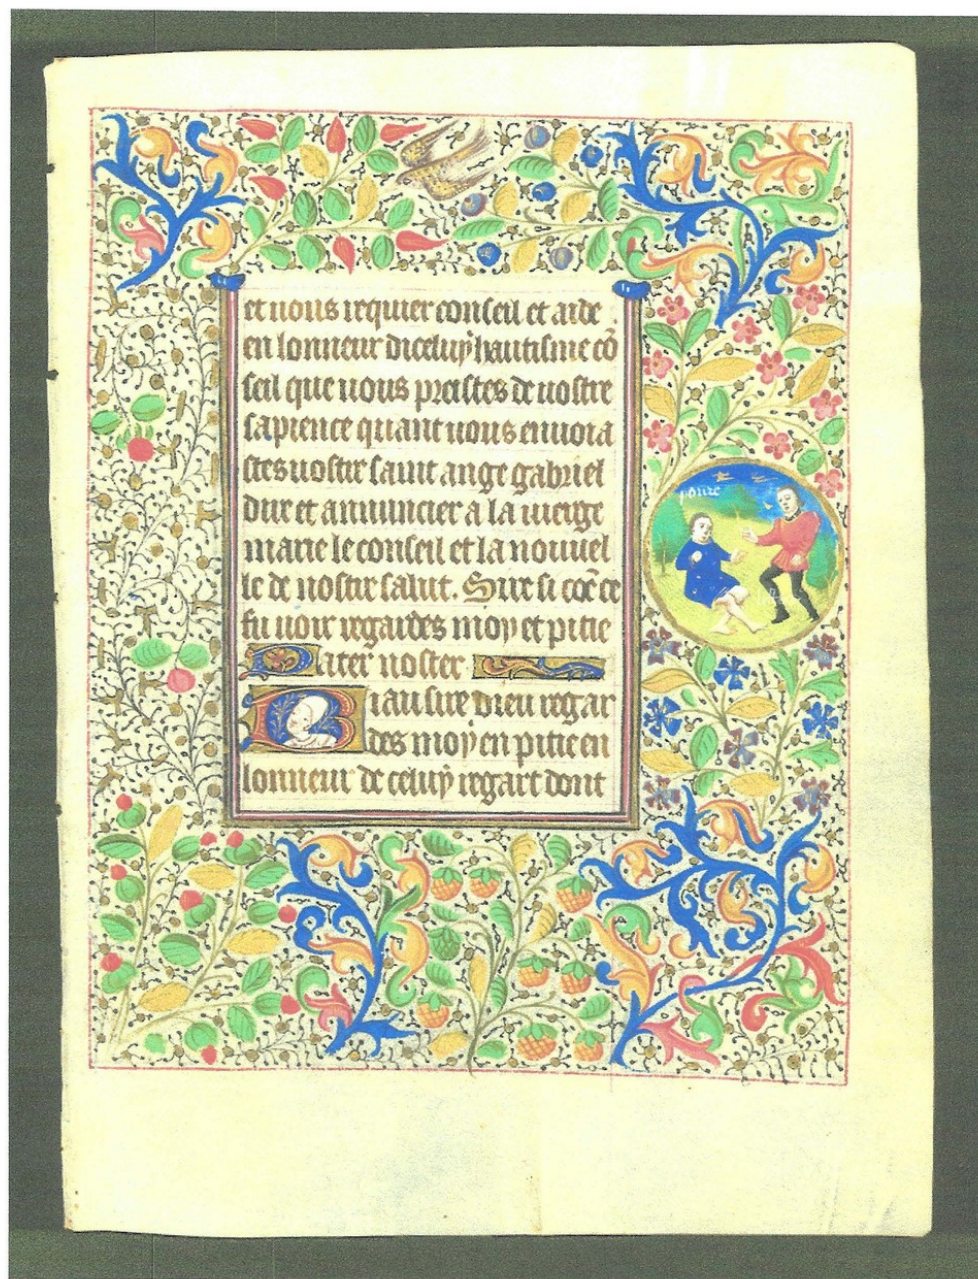 et uous requier conseil et aide
en lonneur diceluy hautisme cō
seil que uous preistes de uostre
sapience quant uous enuoia
stes uostre saint ange gabriel
dire et annuncier a la uierge
marie le conseil et la nouuel
le de nostre salut. Sire si cōe ce
fu uoir regardes moy et pitie
Pater noster
Biau sire dieu regar
des moy en pitie en
lonneur de celuy regart dont